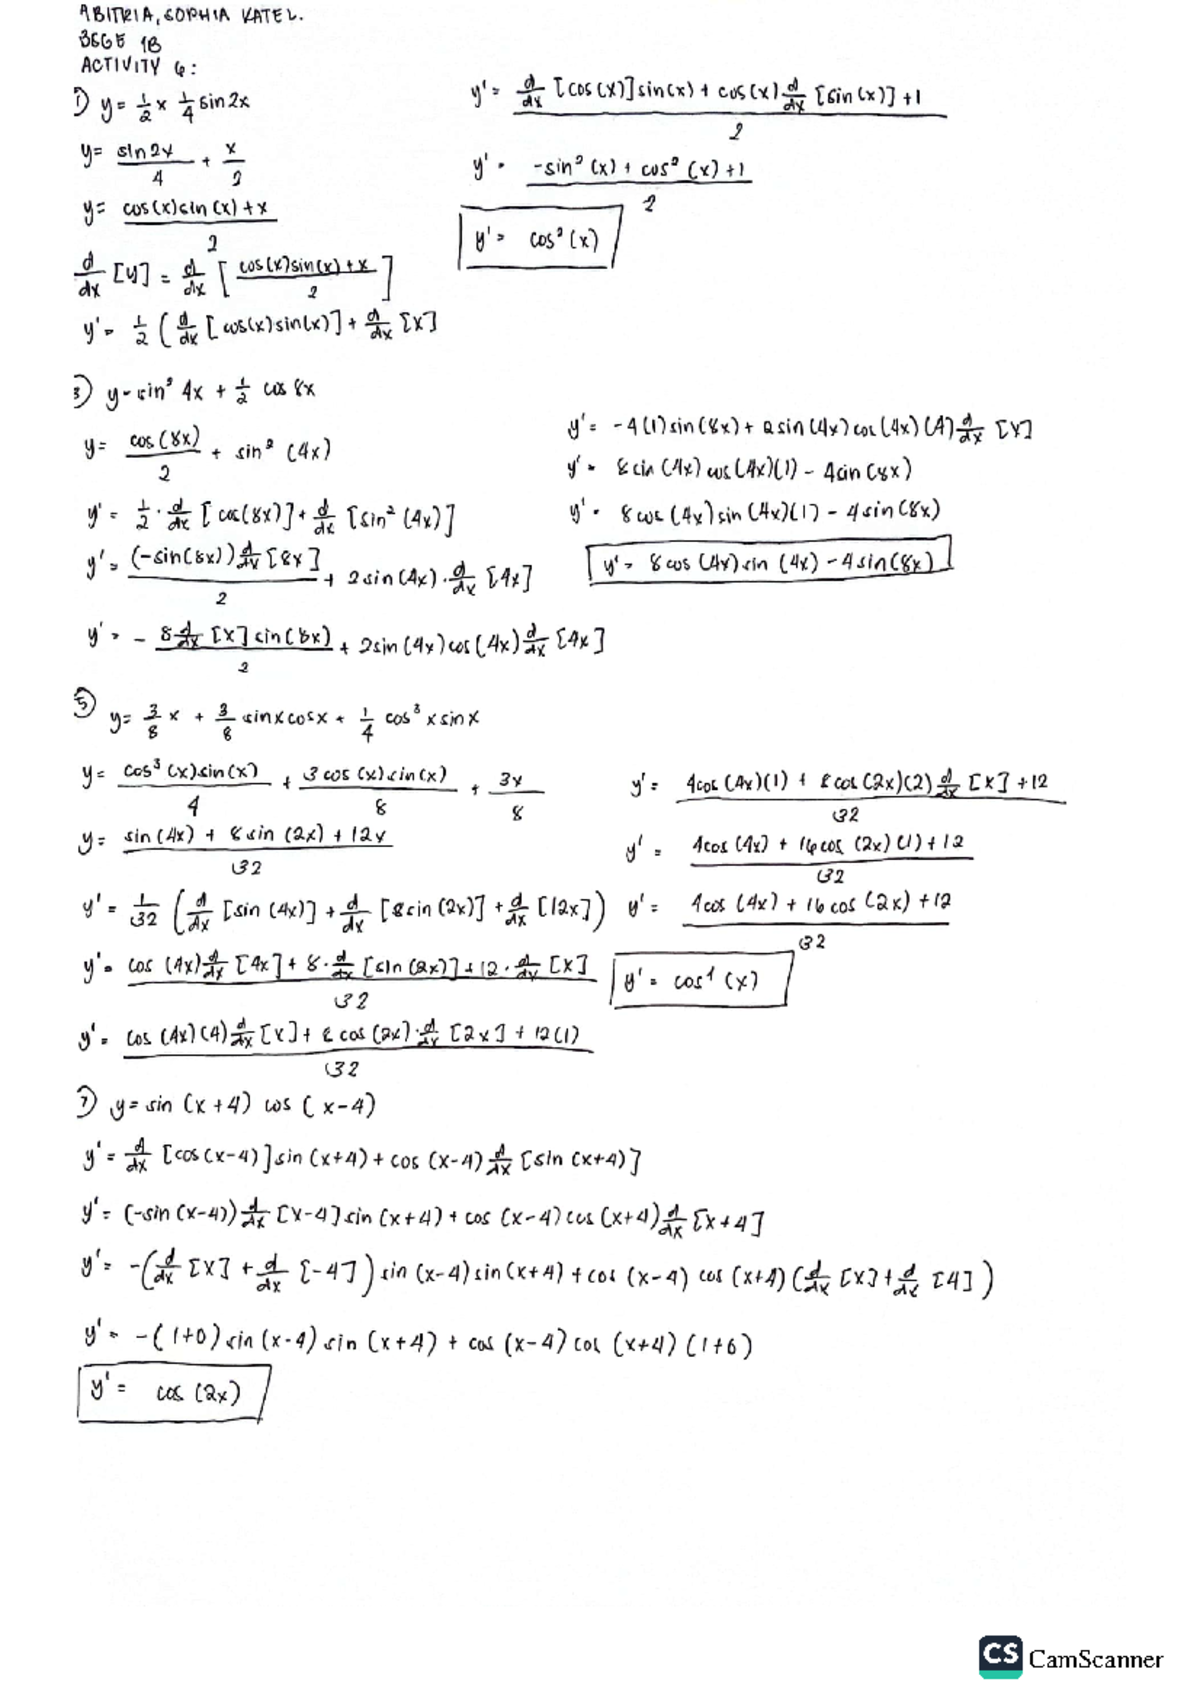 ABITRIA, SOPHIA KATEL.
BSGE 1B
ACTIVITY 6:
① y = 1/2 x 1/4 sin2x
y = sin2x/4 + x/2
y = cos(x)sin(x)+x / 2
d/dx [y] = d/dx [cos(x)sin(x)+x / 2]
y' = 1/2 (d/dx [cos(x)sin(x)] + d/dx [x]
y' = d/dx [cos(x)]sin(x) + cos(x) d/dx [sin(x)] + 1 / 2
y' = -sin²(x) + cos²(x) + 1 / 2
y' = cos²(x)
3) y = sin² 4x + 1/2 cos 8x
y = cos(8x)/2 + sin² (4x)
y' = 1/2 · d/dx [cos(8x)] + d/dx [sin² (4x)]
y' = (-sin(8x)) d/dx [8x] / 2 + 2sin(4x) · d/dx [4x]
y' = - 8 d/dx [x] sin(8x) / 2 + 2sin(4x)cos(4x) d/dx [4x]
y' = -4(1)sin(8x) + 2sin(4x)cos(4x)(4) d/dx [x]
y' = 8sin(4x)cos(4x)(1) - 4sin(8x)
y' = 8cos(4x)sin(4x)(1) - 4sin(8x)
y' = 8cos(4x)sin(4x) - 4sin(8x)
⑤ y = 3/8 x + 3/8 sinxcosx + 1/4 cos³ x sinx
y = cos³(x)sin(x)/4 + 3cos(x)sin(x)/8 + 3x/8
y = sin(4x) + 8sin(2x) + 12x / 32
y' = 1/32 (d/dx [sin(4x)] + d/dx [8sin(2x)] + d/dx [12x])
y' = cos(4x) d/dx [4x] + 8 · d/dx [sin(2x)] + 12 · d/dx [x] / 32
y' = cos(4x)(4) d/dx [x] + 8cos(2x) · d/dx [2x] + 12(1) / 32
y' = 4cos(4x)(1) + 8cos(2x)(2) d/dx [x] + 12 / 32
y' = 4cos(4x) + 16cos(2x)(1) + 12 / 32
y' = 4cos(4x) + 16cos(2x) + 12 / 32
y' = cos⁴(x)
7) y = sin(x+4) cos(x-4)
y' = d/dx [cos(x-4)]sin(x+4) + cos(x-4) d/dx [sin(x+4)]
y' = (-sin(x-4)) d/dx [x-4] sin(x+4) + cos(x-4)cos(x+4) d/dx [x+4]
y' = -(d/dx [x] + d/dx [-4]) sin(x-4)sin(x+4) + cos(x-4) cos(x+4) (d/dx [x] + d/dx [4])
y' = -(1+0)sin(x-4)sin(x+4) + cos(x-4)cos(x+4)(1+0)
y' = cos(2x)
CS CamScanner